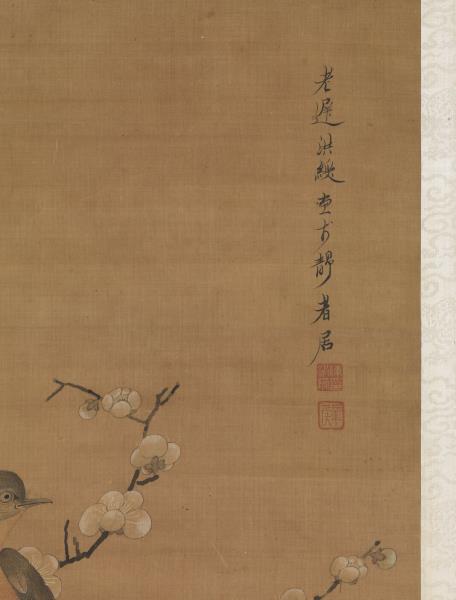 老遲洪綬畫于靜者居